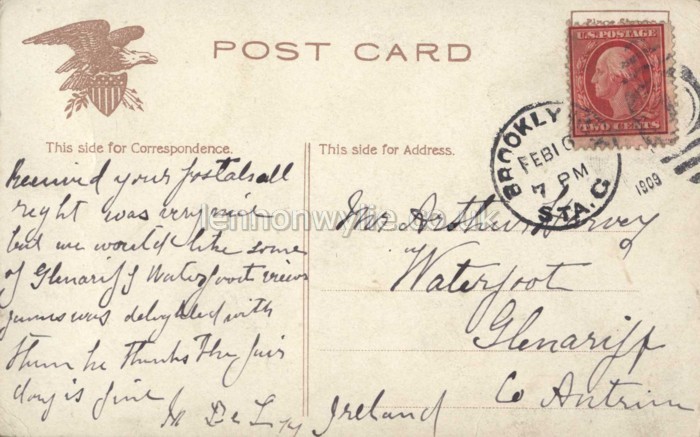 POST CARD
U.S. POSTAGE
TWO CENTS
BROOKLY
FEB 10
7 PM
STA. C
1909
This side for Correspondence.
This side for Address.
Received your postals all
right was very nice
but we would like some
of Glenariff Waterfoot views
James was delighted with
them he thanks The fair
day is fine
Mr Arthur
Waterfoot
Glenariff
Co Antrim
Ireland
lennonwylie.co.uk